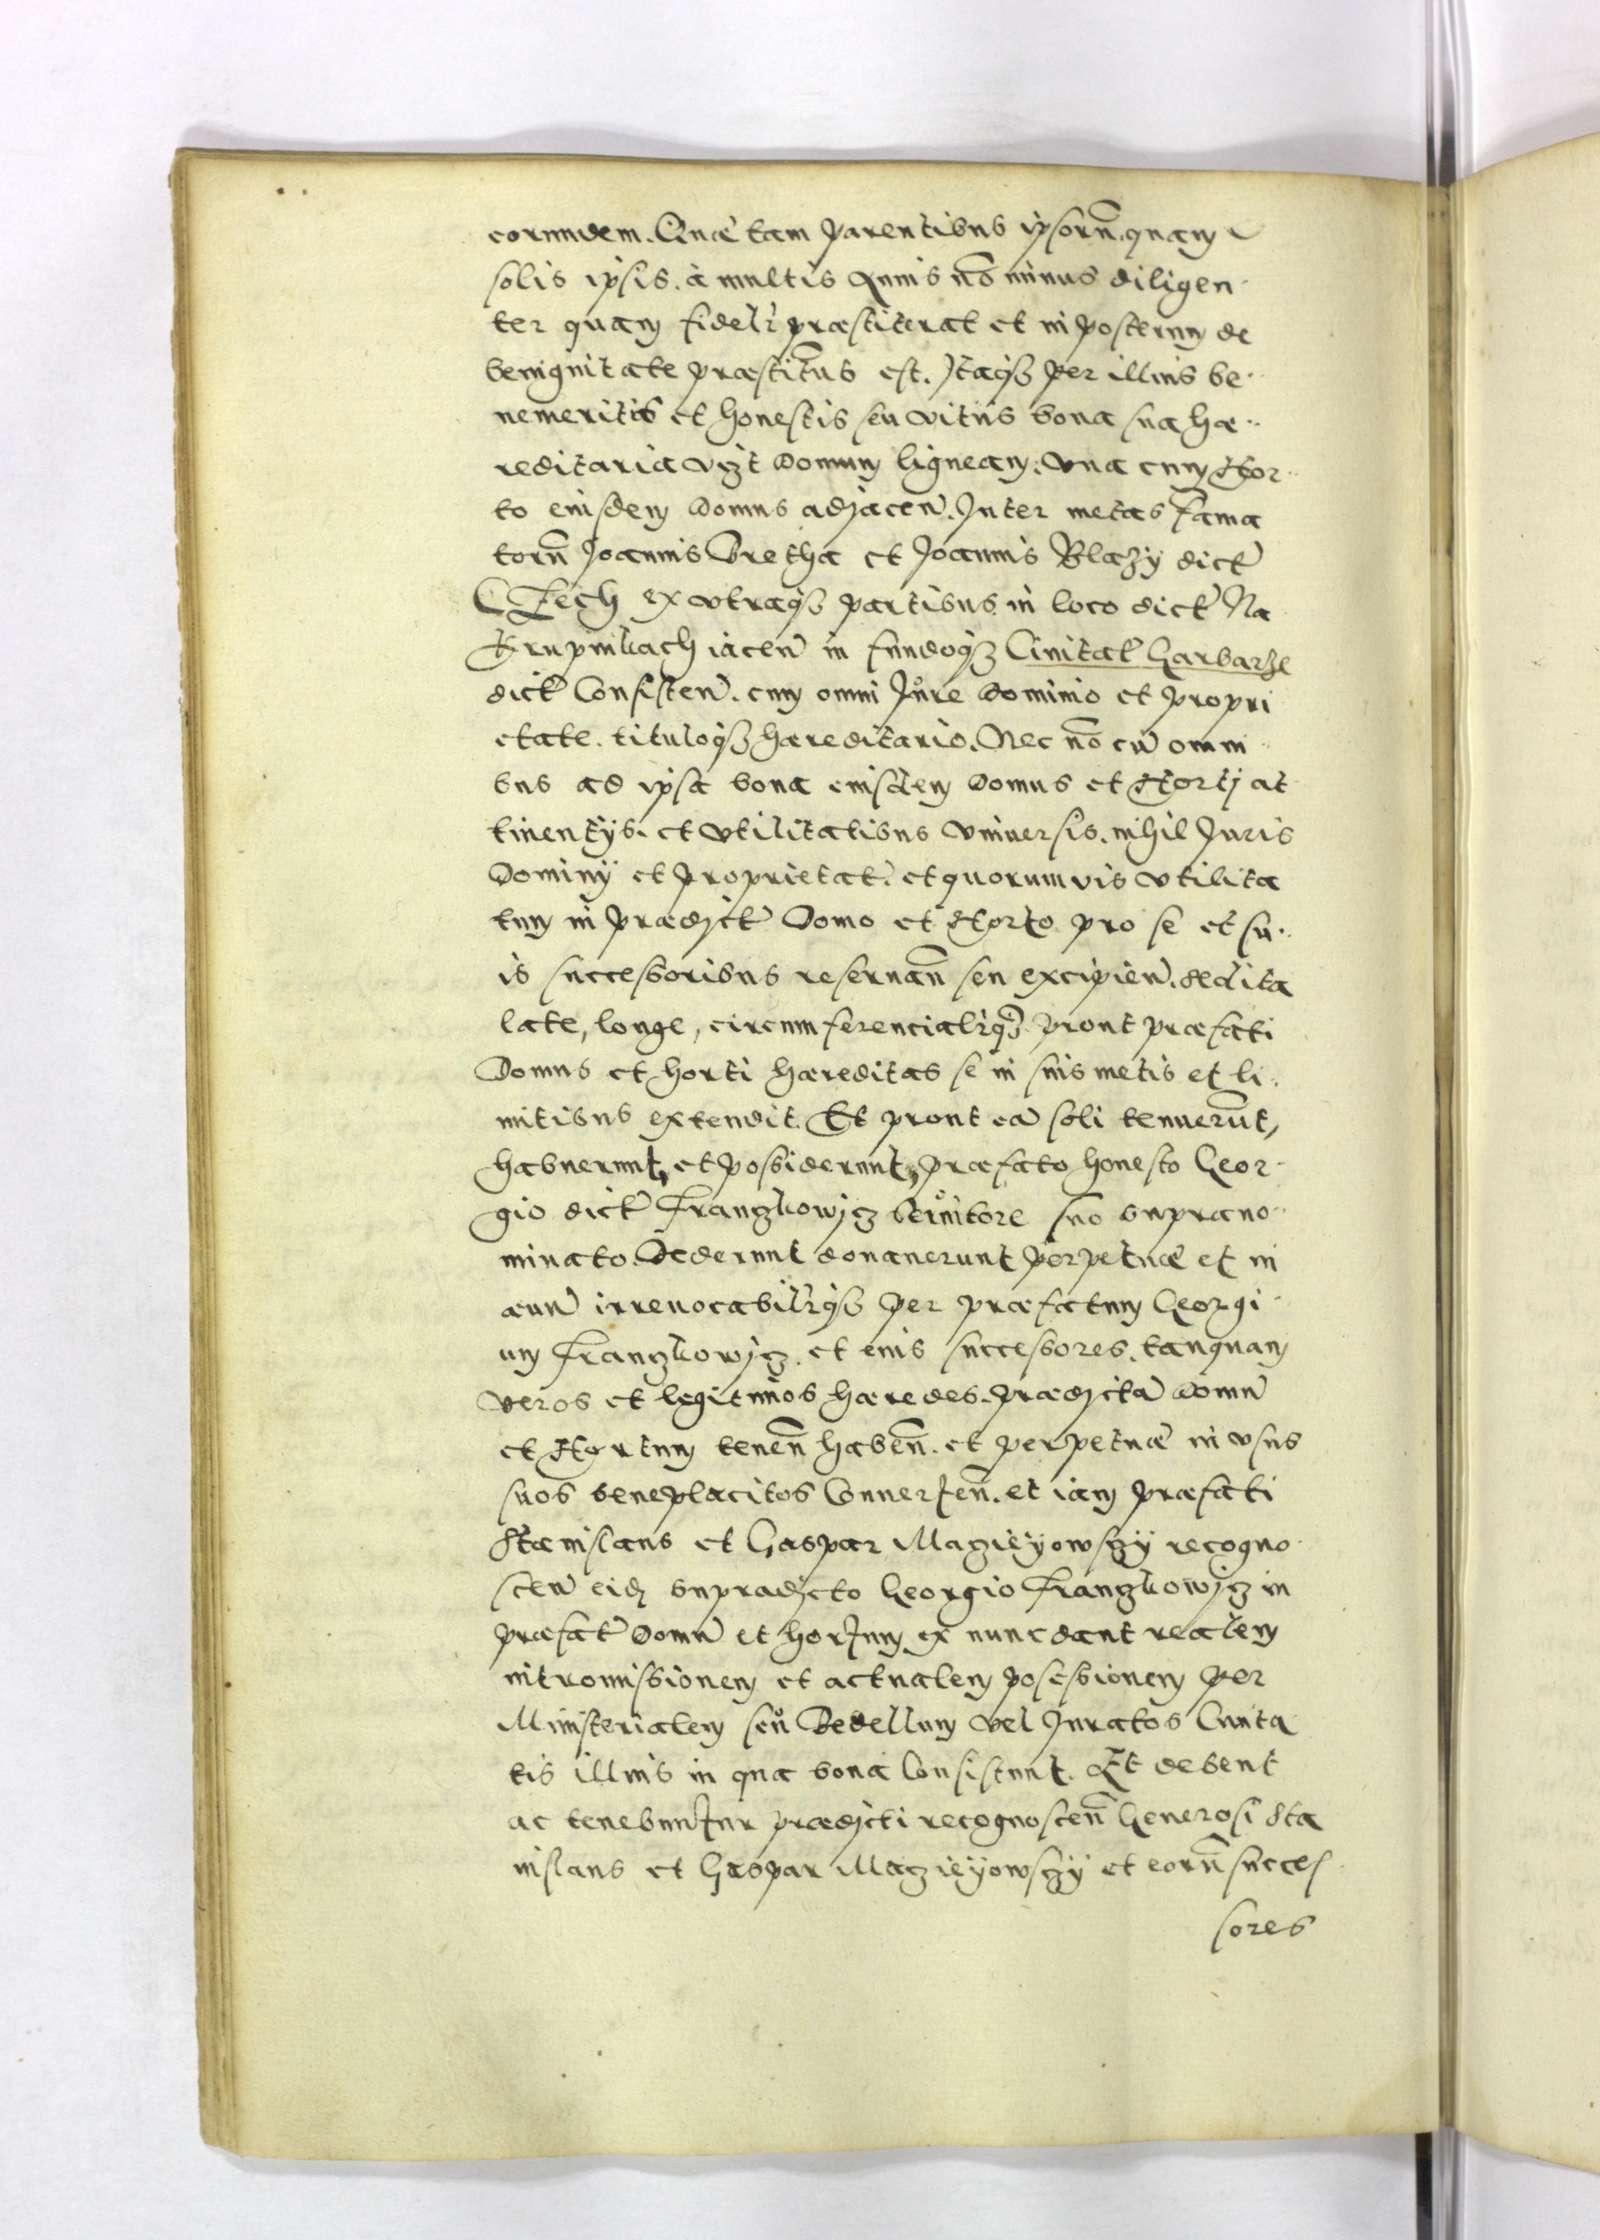 eorumdem. Quæ tam parentibus ipsorū. quam
solis ipsis. à multis Annis nō minus diligen
ter quam fidelr̃ præstiterat et in posterum de
benignitate præstiturus est. Itaqȝ per illius be
nemeritis et honestis seruitiis bona sua hæ
reditaria vizt Domum ligneam. Vna cum Hor
to eiusdem Domus adjacen̄. Inter metas fama
torū Joannis Bretha et Joannis Blazÿ dict̄
Czech ex vtraqȝ partibus in loco dict̄ Na
Krupnikach iacen̄ in fundoqȝ Ciuitat̄ Garbarze
dict̄ Consisten̄. cum omni Jůre Dominio et propri
etate. tituloqȝ hæreditario. Nec nō cū omni
bus ad ipsa bona eiusdem Domus et Horti at
tinentÿs. et Vtilitatibus vniuersis. nihil Juris
Dominÿ et proprietat̄. et quorumvis vtilita
tum in prædict̄ Domo et Horto pro se et su
is successoribus reseruan̄ seu excipien̄. sed ita
late, longe, circumferencialr̃qȝ prout præfati
Domus et horti hæreditas se in suis metis et li
mitibus extendit. Et prout eā soli tenuerūt,
habuerunt, et possiderunt, præfato honesto Geor
gio dict̄ Franczkowicz seruitore suo suprano
minato. Dederunt donauerunt perpetuæ et in
æuū irreuocabilr̃qȝ per præfatum Georgi
um Franczkowicz. et eius successores. tanquam
veros et legitimos hæredes. prædictā Domū
et Hortum tenen̄ haben̄. et perpetuæ in vsus
suos beneplacitos Conuerten̄. et iam præfati
Stanislaus et Gaspar Macieÿowsczÿ recogno
scen̄ eidȝ supradicto Georgio Franczkowicz in
præfat̄ Domū et hortum ex nunc dant realem
intromissionem et actualem posessionem per
Ministerialem seů Bedellum vel Juratos Ciuita
tis illius in qua bona Consistunt. Et debent
ac tenebuntur prædicti recognoscen̄ Generosi Sta
nislaus et Gaspar Macieÿowsczÿ et eorū succes
sores